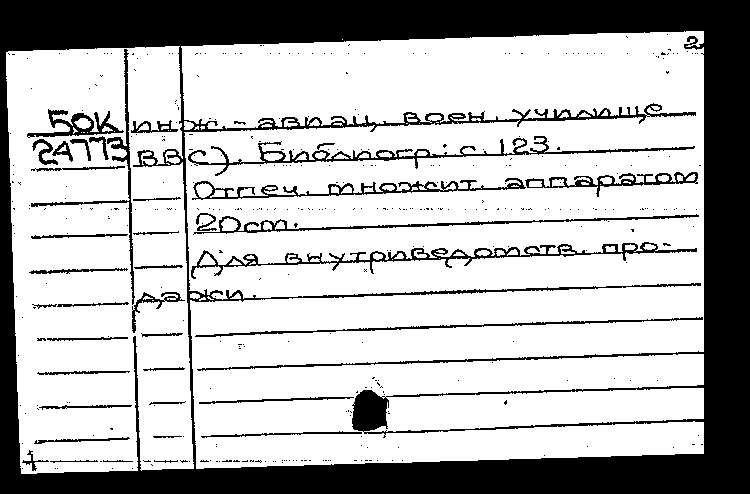 2
БОК инж.-авиац. воен. училище
24773 ВВС). Библиогр.: с. 123.
Отпеч. множит. аппаратом
20 cm.
Для внутриведомств. про-
дажи.